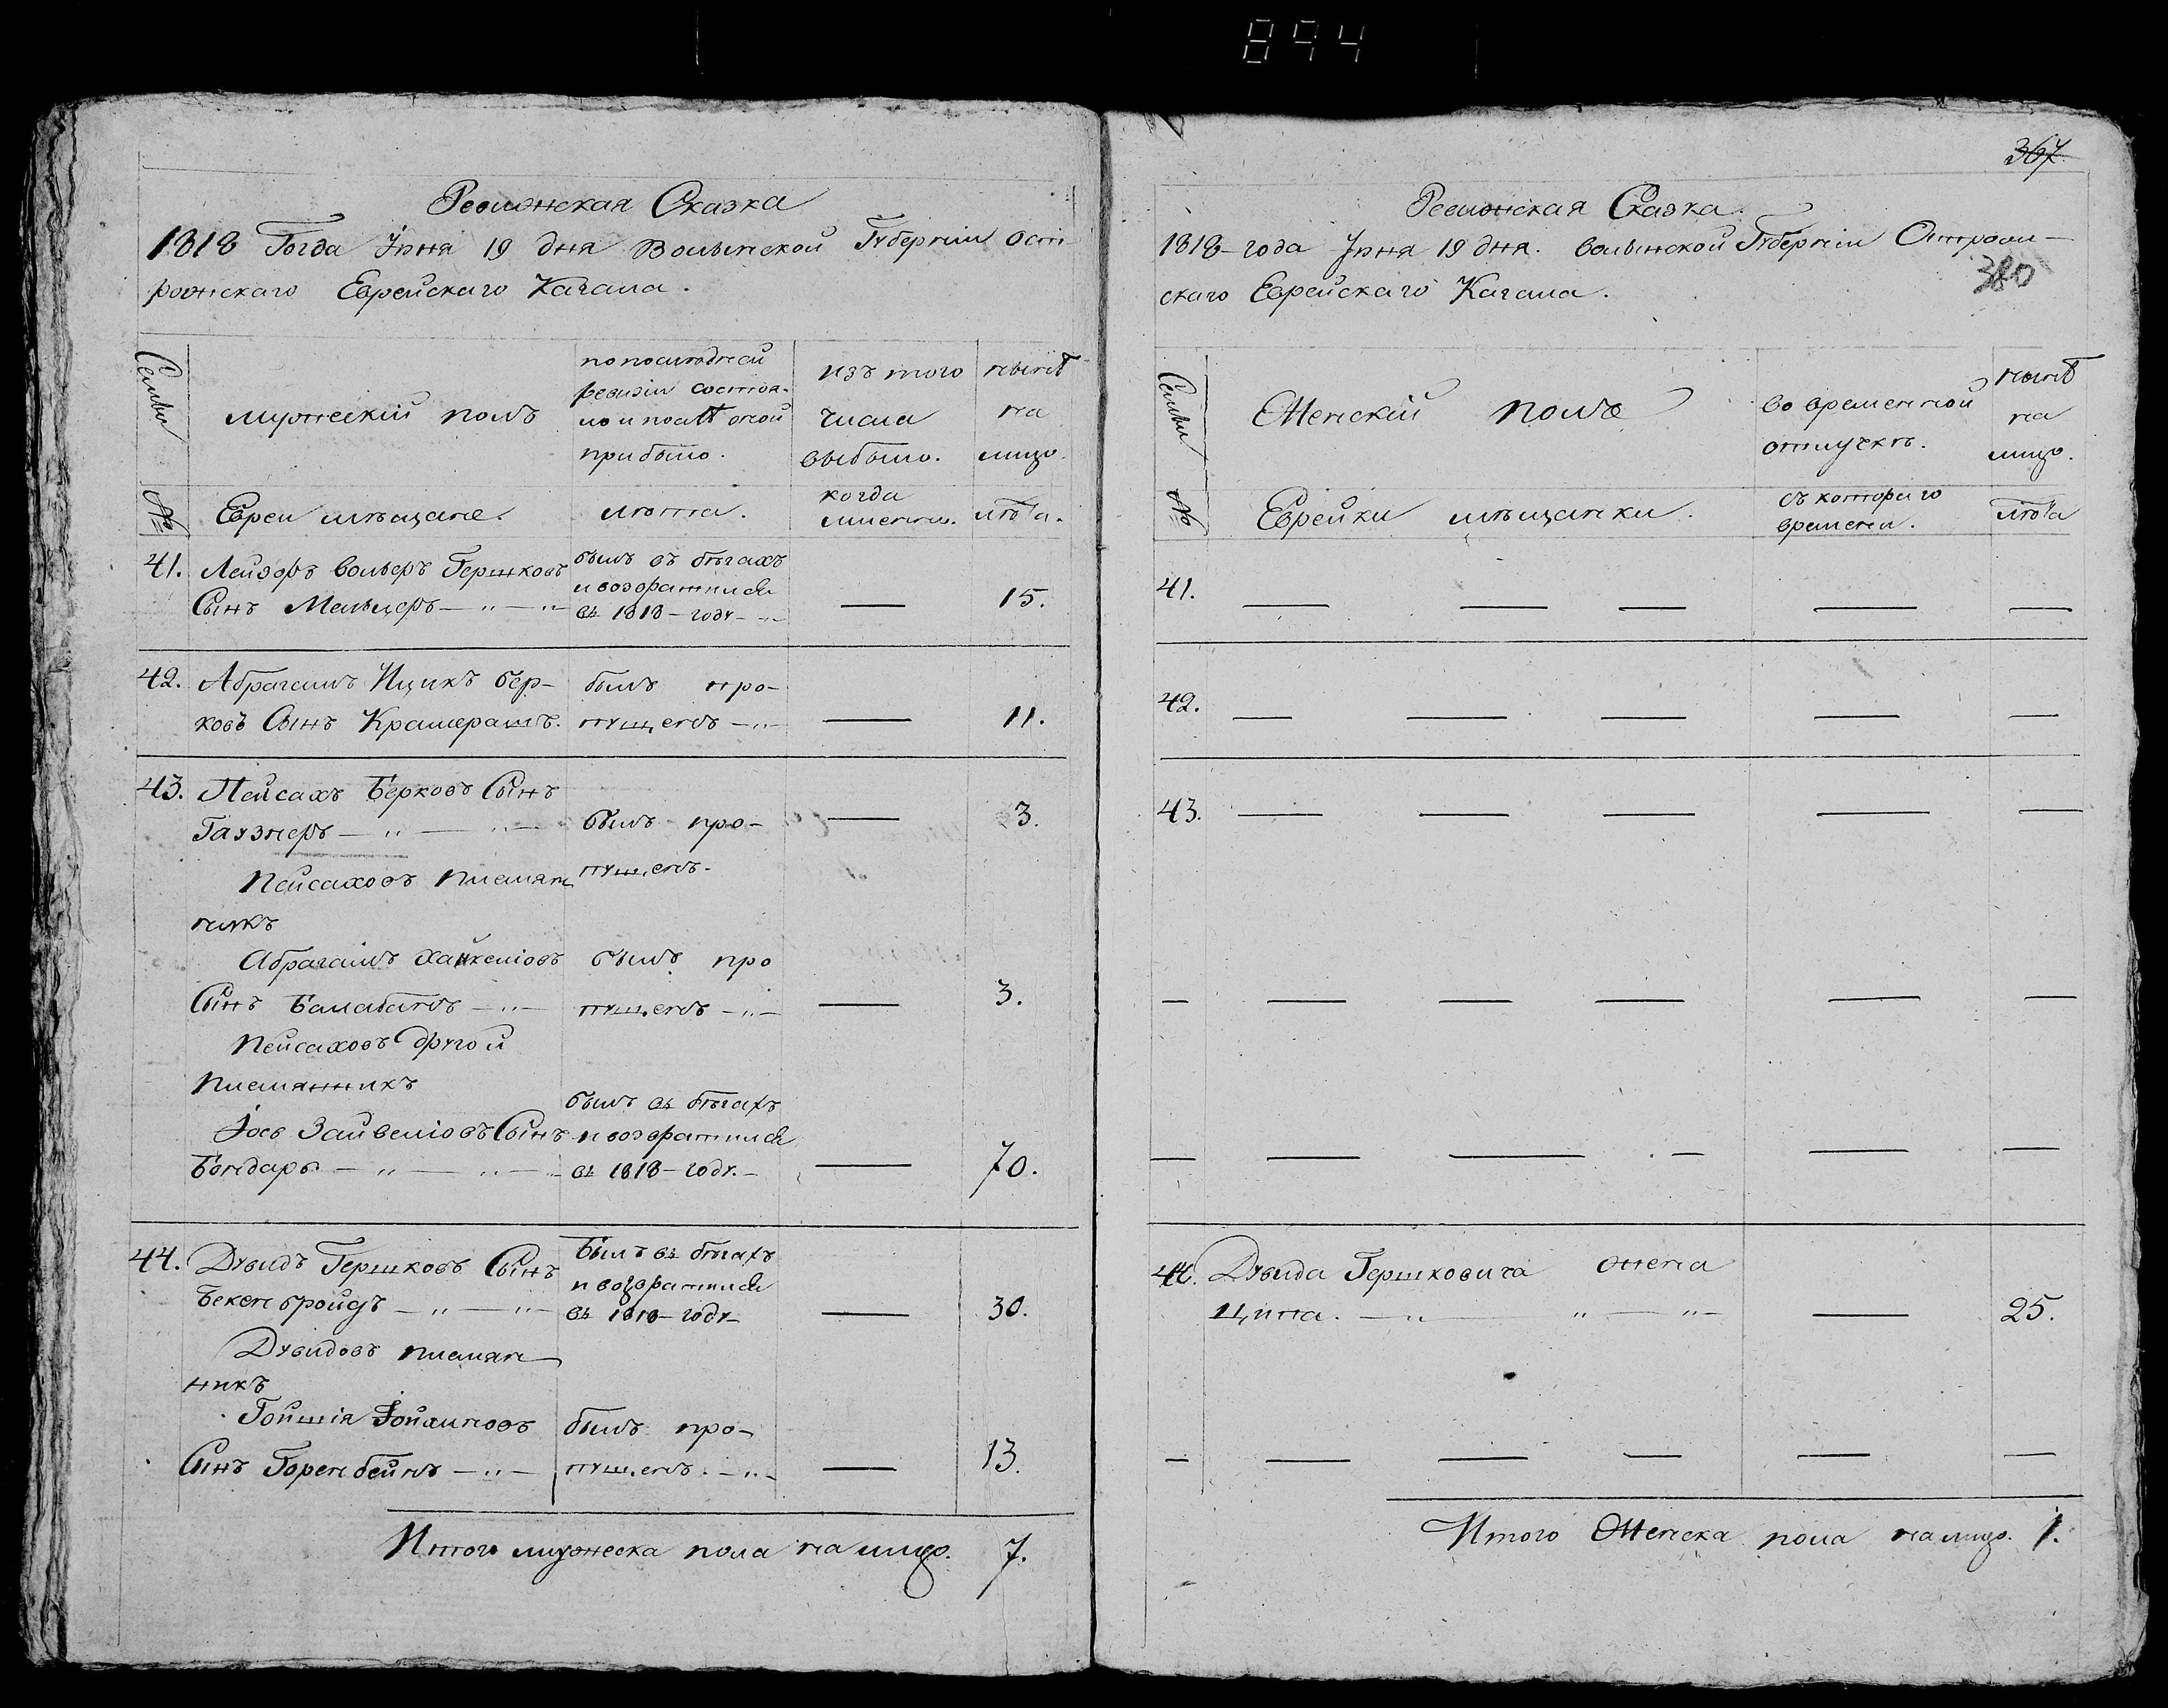 894
Ревизская Сказка
1818 Года Июня 19 дня Волынской Губернии Ост-
рожскаго Еврейскаго Кагала.
Семьи
мужескій полъ
по последней
ревизіи состоя-
ло и после оной
прибыло.
изъ того
числа
выбыло.
ныне
на
лицо.
№
Евреи мѣщане.
лѣта.
когда
имянно.
лѣта.
41. Лейзоръ Вольеръ Гершковъ
Сынъ Мельцеръ
былъ въ бѣгахъ
и возвратился
въ 1818 году
15.
42. Абрагамъ Ицикъ Бер-
ковъ Сынъ Крамерашъ.
былъ про-
пущенъ
11.
43. Пейсахъ Берковъ Сынъ
Гаузнеръ
былъ про-
пущенъ.
3.
Пейсаховъ племян
никъ
Абрагамъ Хайкеліовъ
Сынъ Балабанъ
былъ про
пущенъ
3.
Пейсаховъ другой
племянникъ
Іос Зайвеліовъ Сынъ
Бондаръ
былъ въ бѣгахъ
и возвратился
въ 1818 году.
70.
44. Дувидъ Гершковъ Сынъ
Бекенбройдъ
Былъ въ бѣгахъ
и возвратился
въ 1818 году
30.
Дувидовъ племян
никъ
Гойшія Іойлиновъ
Сынъ Горенбейнъ
былъ про-
пущенъ.
13.
Итого мужеска пола на лицо. 7.
367
Ревизская Сказка.
1818 года Июня 19 дня. Волынской Губерніи Острож-
скаго Еврейскаго Кагала.
380
Семьи
Женскій полъ
во временной
отлучкѣ.
ныне
на
лицо.
№
Еврейки мѣщанки.
съ котораго
времени.
лѣта
41.
42.
43.
44. Дувида Гершковича жена
Ципа.
25.
Итого Женска пола на лицо. 1.